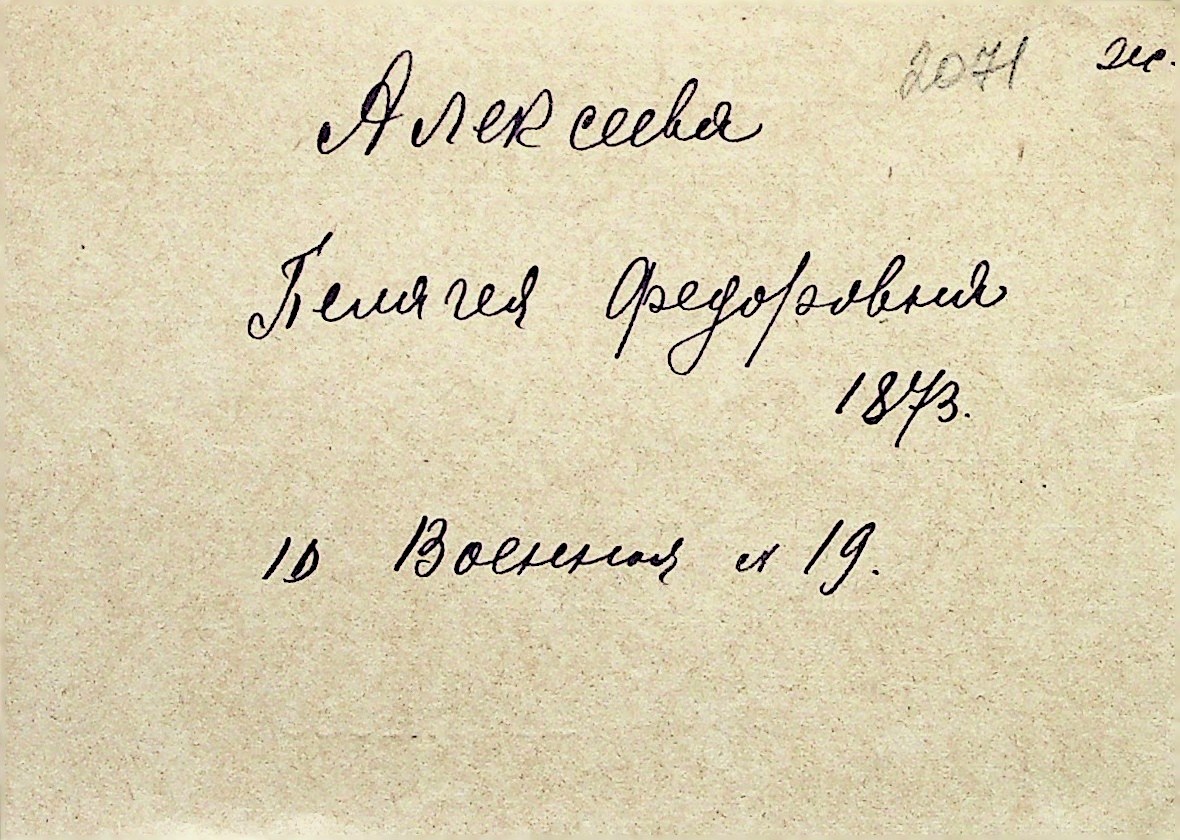 2071 ж.
Алексеева
Пелагея Федоровна
1873.
10 Военная д 19.